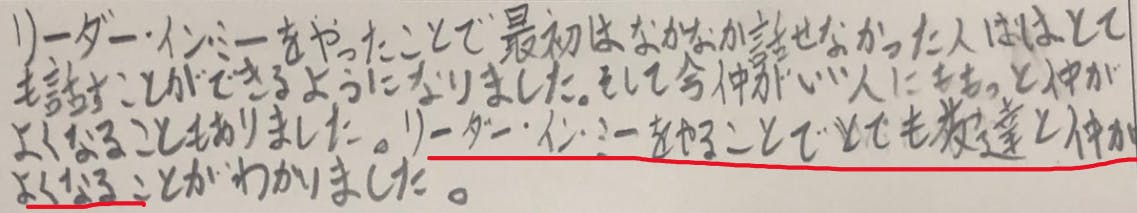 リーダー・イン・ミーをやったことで最初はなかなか話せなかった人はほとて
も話すことができるようになりました。そして今仲がいい人にももっと仲が
よくなることもありました。リーダー・イン・ミーをやることでとても友達と仲が
よくなることがわかりました。